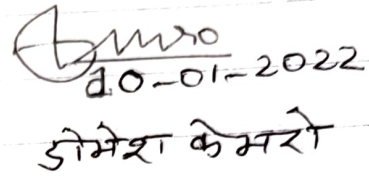 20-01-2022
डोमेश केमरो